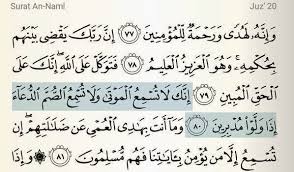 Surat An-Naml Juz' 20
وَإِنَّهُۥ لَهُدًى وَرَحْمَةٌ لِّلْمُؤْمِنِينَ ٧٧ إِنَّ رَبَّكَ يَقْضِى بَيْنَهُم
بِحُكْمِهِۦ ۚ وَهُوَ ٱلْعَزِيزُ ٱلْعَلِيمُ ٧٨ فَتَوَكَّلْ عَلَى ٱللَّهِ ۖ إِنَّكَ عَلَى
ٱلْحَقِّ ٱلْمُبِينِ ٧٩ إِنَّكَ لَا تُسْمِعُ ٱلْمَوْتَىٰ وَلَا تُسْمِعُ ٱلصُّمَّ ٱلدُّعَآءَ
إِذَا وَلَّوْا۟ مُدْبِرِينَ ٨٠ وَمَآ أَنتَ بِهَـٰدِى ٱلْعُمْىِ عَن ضَلَـٰلَتِهِمْ ۖ إِن
تُسْمِعُ إِلَّا مَن يُؤْمِنُ بِـَٔايَـٰتِنَا فَهُم مُّسْلِمُونَ ٨١ ۞ وَإِذَا